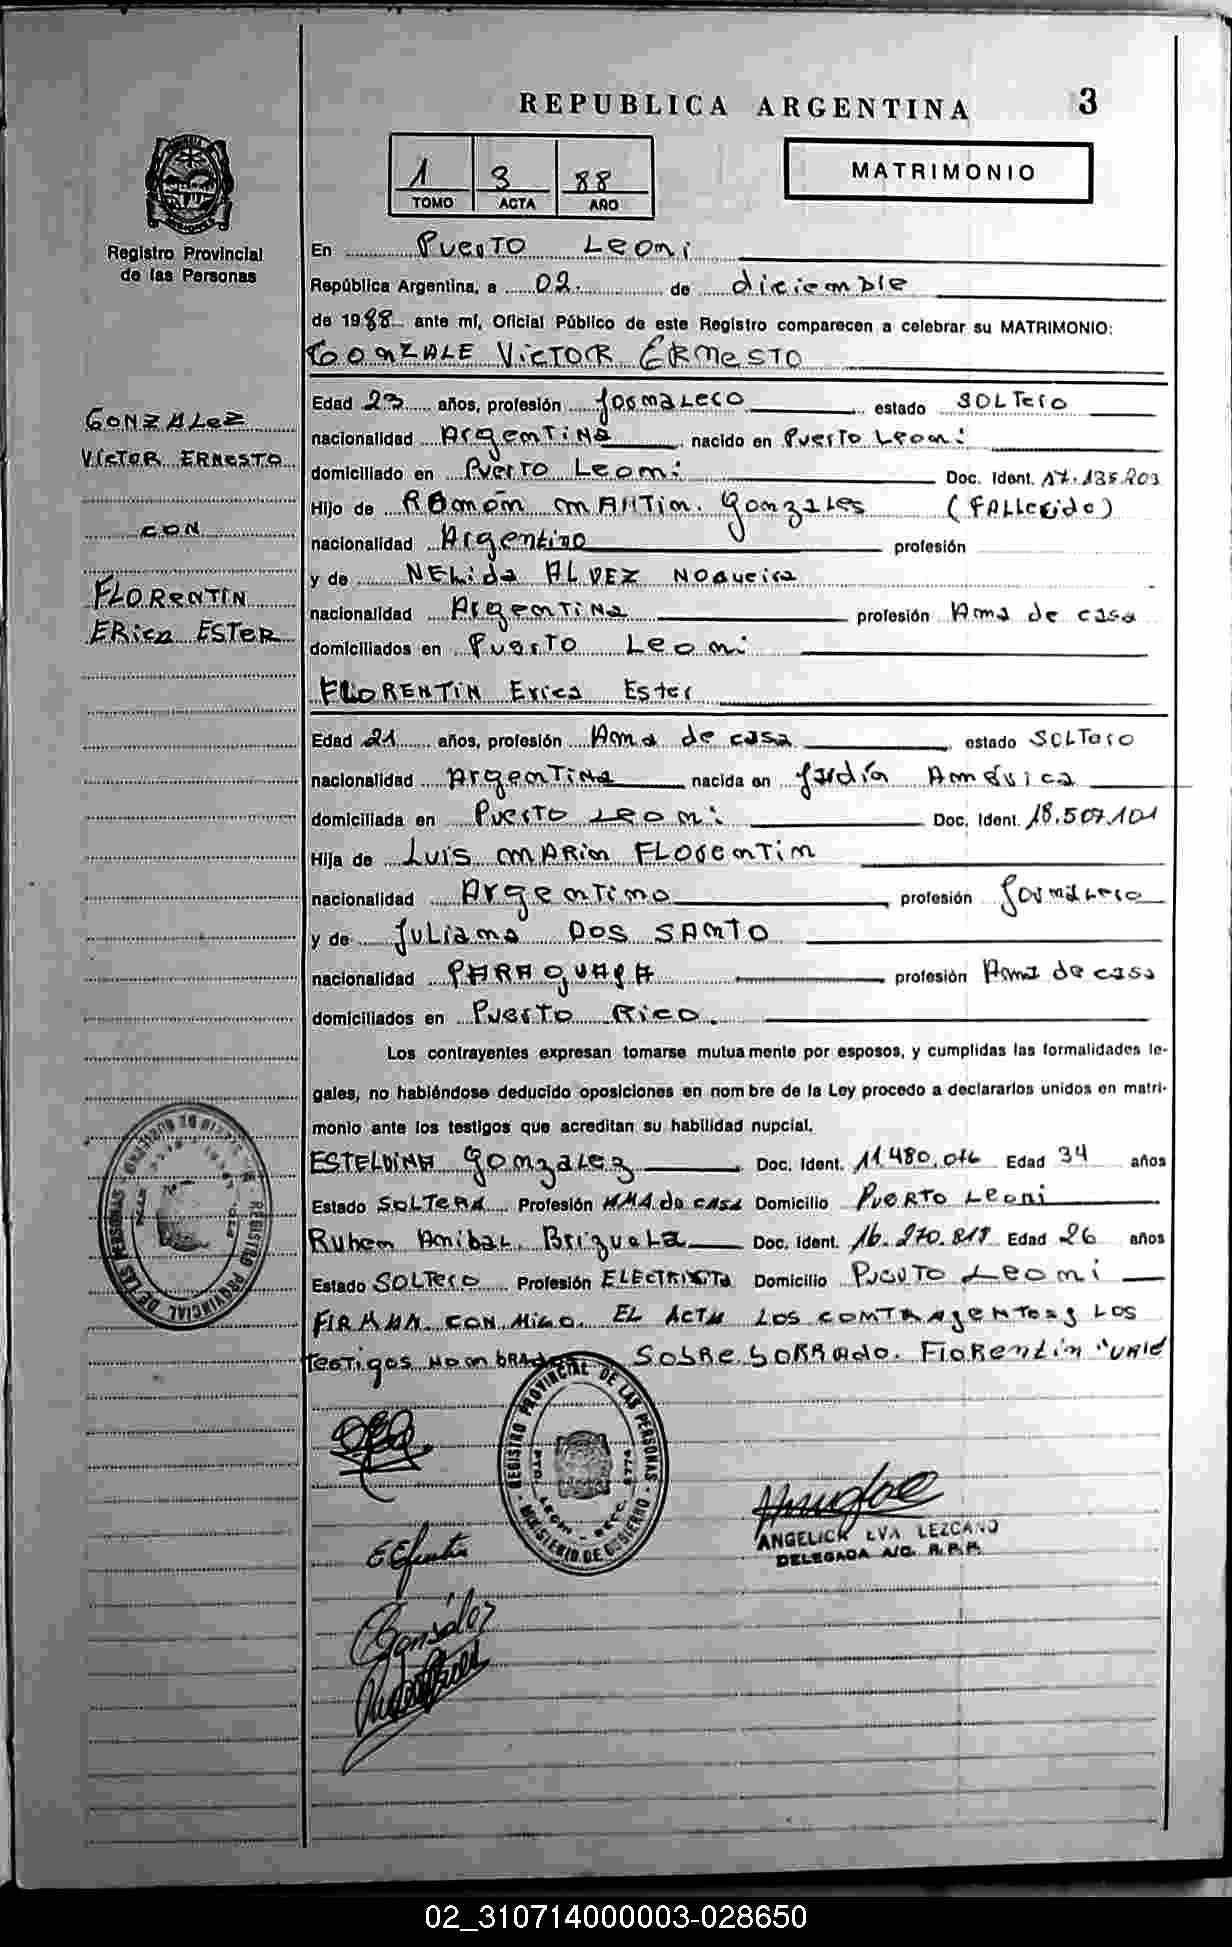 REPUBLICA ARGENTINA 3
MATRIMONIO
1 3 88
TOMO ACTA AÑO
Registro Provincial
de las Personas
En Puerto Leoni
República Argentina, a 02. de diciembre
de 1988 ante mí, Oficial Público de este Registro comparecen a celebrar su MATRIMONIO:
GONZALE VICTOR ERNESTO
GONZALEZ
VICTOR ERNESTO
CON
FLORENTIN
ERICA ESTER
Edad 23 años, profesión Jornalero estado SOLTero
nacionalidad Argentina nacido en Puerto Leoni
domiciliado en Puerto Leoni Doc. Ident. 17.135.203
Hijo de Ramón Martin Gonzales (Fallecido)
nacionalidad Argentino profesión
y de NELida ALVEZ NOGueira
nacionalidad Argentina profesión Ama de casa
domiciliados en Puerto Leoni
FLORENTIN Erica Ester
Edad 21 años, profesión Ama de casa estado SOLTero
nacionalidad Argentina nacida en Jardín América
domiciliada en Puerto Leoni Doc. Ident. 18.507.101
Hija de Luis MARin FLOrenTin
nacionalidad Argentino profesión Jornalero
y de Juliana DOS SANTO
nacionalidad PARAGUAYA profesión Ama de casa
domiciliados en Puerto Rico.
Los contrayentes expresan tomarse mutuamente por esposos, y cumplidas las formalidades le-
gales, no habiéndose deducido oposiciones en nombre de la Ley procedo a declararlos unidos en matri-
monio ante los testigos que acreditan su habilidad nupcial.
ESTELDINA Gonzalez Doc. Ident. 11.480.016 Edad 34 años
Estado SOLTERA Profesión AMA de casa Domicilio Puerto Leoni
Ruben Anibal Brizuela Doc. Ident. 16.270.819 Edad 26 años
Estado SOLTero Profesión ELECTRISTA Domicilio Puerto Leoni
FIRMAN CON MIGO. EL ACTA LOS CONTRAYENTES y LOS
TesTigos NOMBRADOS SOBRE BORRADO. Florentin "VALE
REGISTRO PROVINCIAL DE LAS PERSONAS - MINISTERIO DE GOBIERNO -
PTO. LEONI
González
ANGELICA EVA LEZCANO
DELEGADA A/C. R.P.P.
02_310714000003-028650